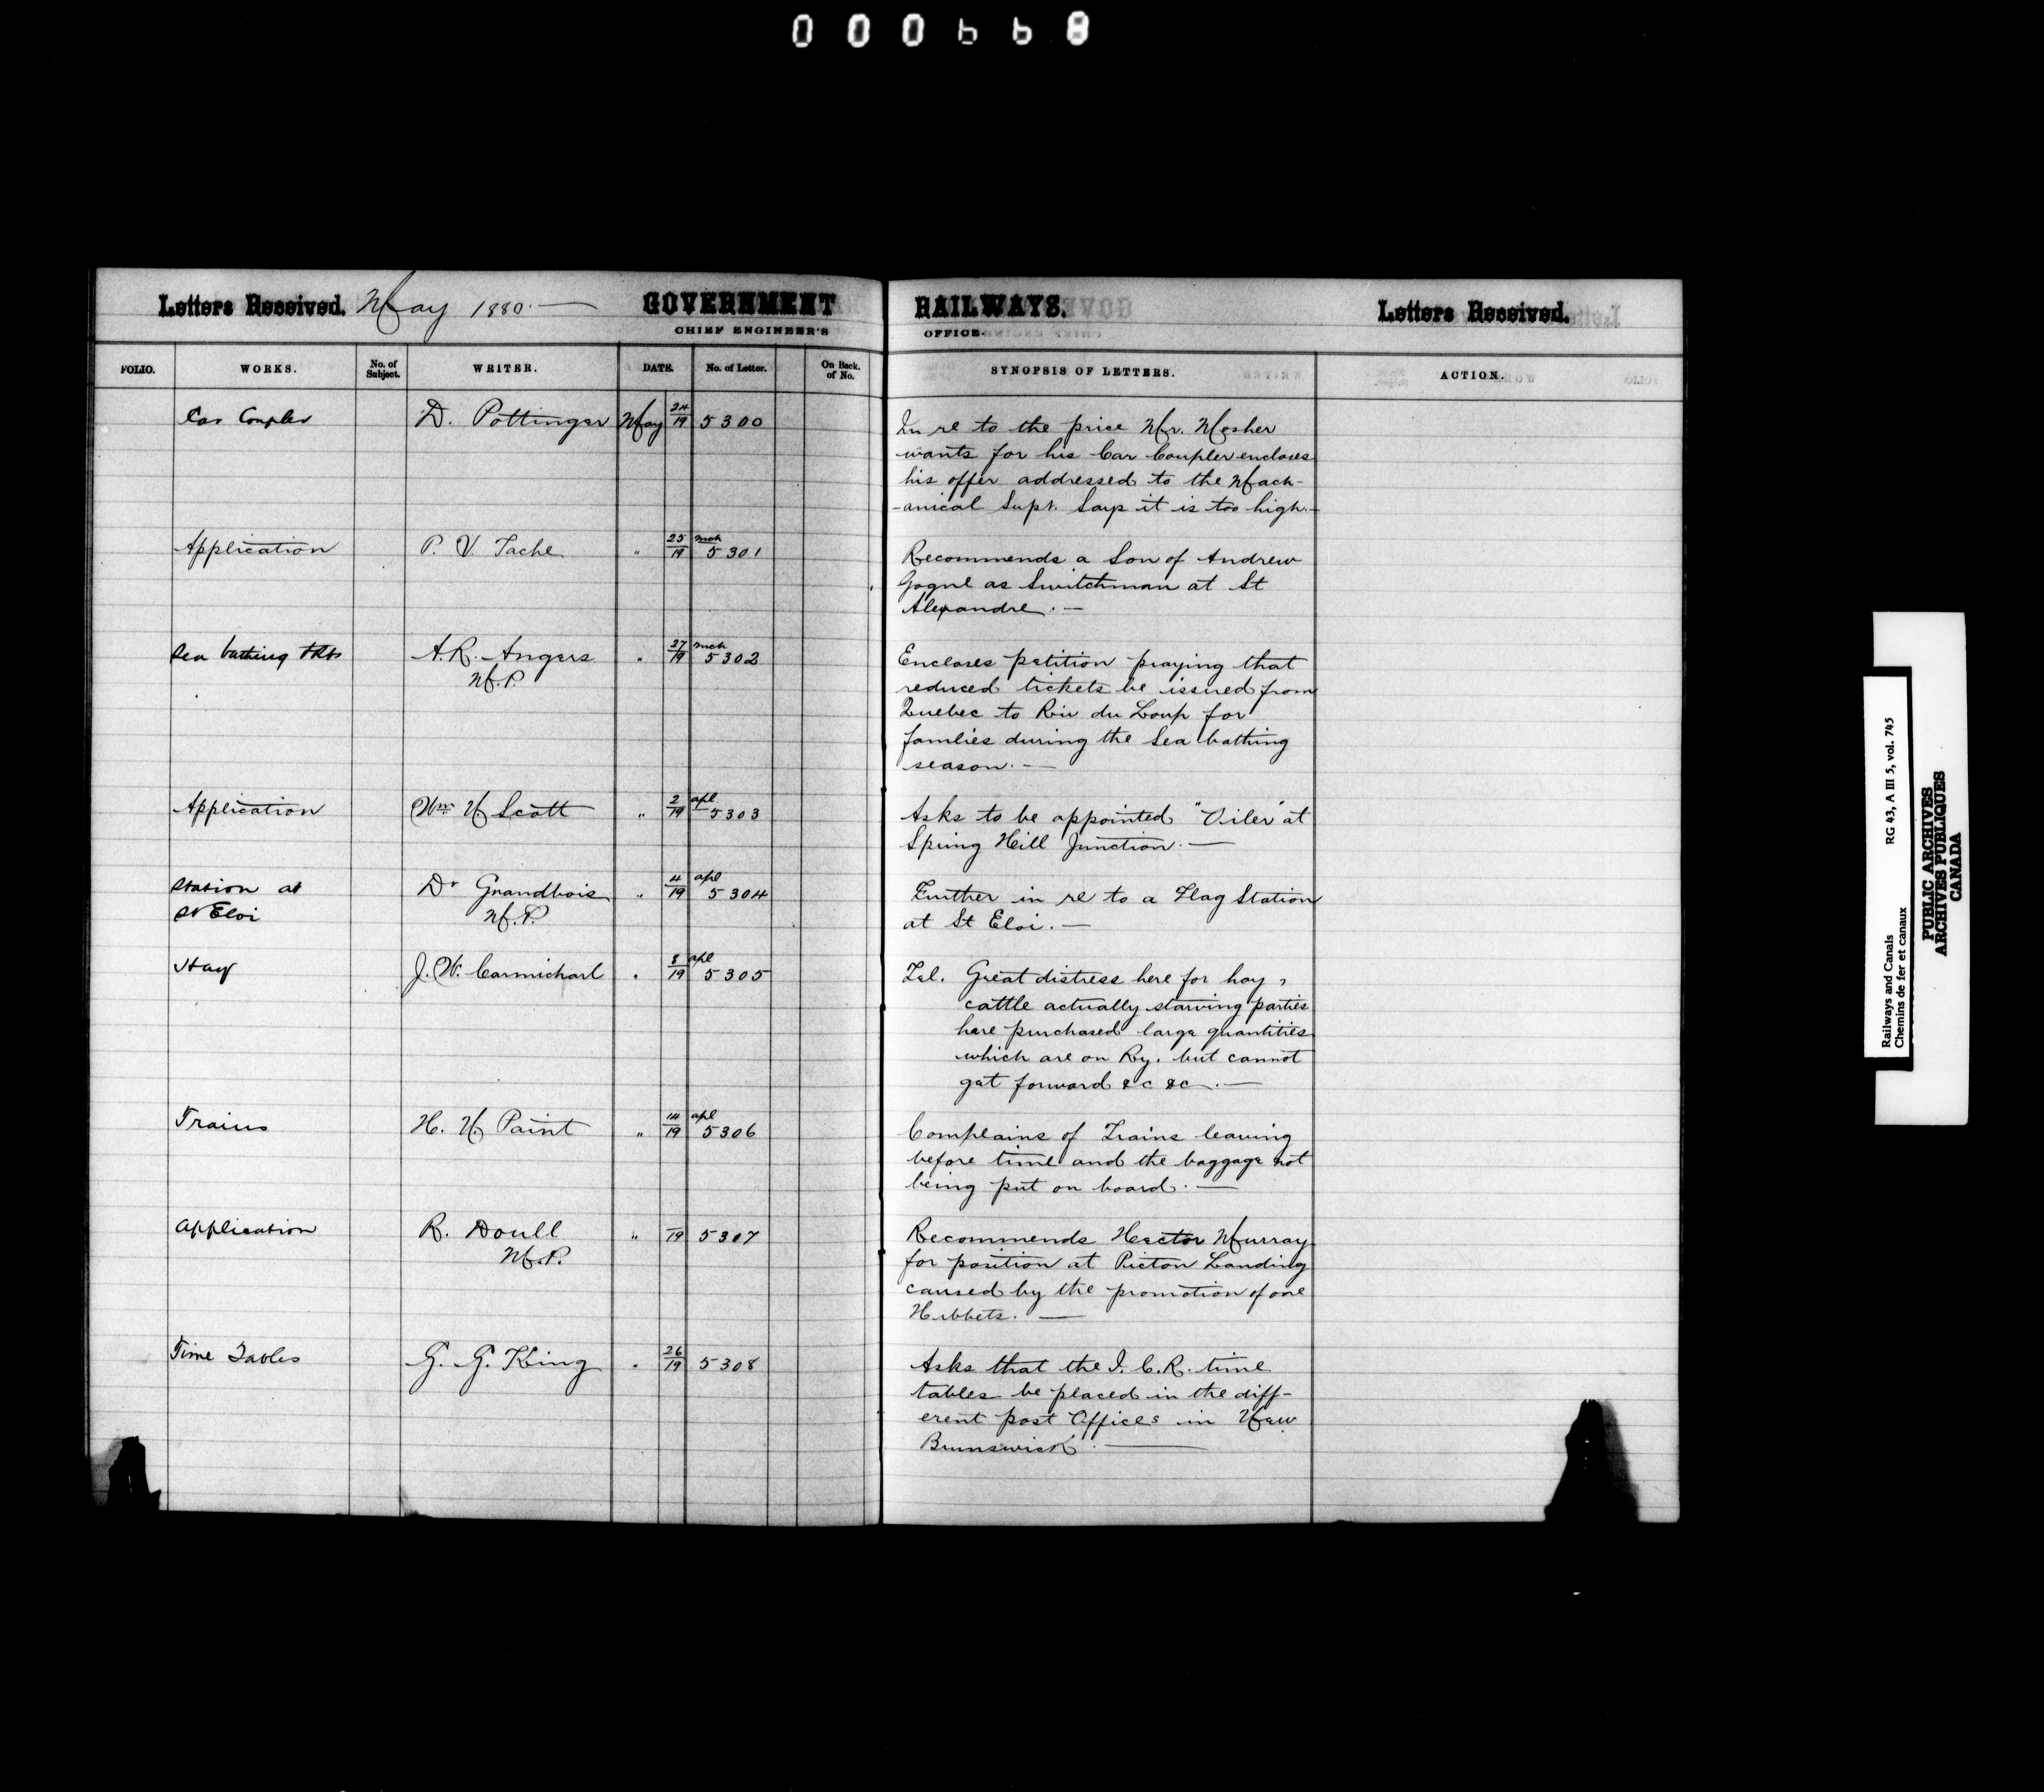 000668
Letters Received. May 1880.— GOVERNMENT RAILWAYS. Letters Received.
CHIEF ENGINEER'S OFFICE.
FOLIO. WORKS. No. of Subject. WRITER. DATE. No. of Letter. On Back. of No. SYNOPSIS OF LETTERS. ACTION.
Car Coupler D. Pottinger May 24/19 5300 In re to the price Mr. Mosher
wants for his Car Coupler encloses
his offer addressed to the Mach-
-anical Supt. Says it is too high.—
Application P. V. Tache " 25/19 mch 5301 Recommends a Son of Andrew
Gogne as Switchman at St
Alexandre.—
Sea bathing tkts A. R. Angers " 27/19 mch 5302 Encloses petition praying that
M.P. reduced tickets be issued from
Quebec to Riv du Loup for
families during the Sea bathing
season.—
Application Wm H Scott " 2/19 apl 5303 Asks to be appointed "Oiler" at
Spring Hill Junction.—
Station at Dr Grandbois " 4/19 apl 5304 Further in re to a Flag Station
St Eloi M.P. at St Eloi.—
Hay J. W. Carmichael " 8/19 apl 5305 Tel. Great distress here for hay,
cattle actually starving parties
here purchased large quantities
which are on Ry. but cannot
get forward &c &c.—
Trains H. N Paint " 14/19 apl 5306 Complains of Trains leaving
before time and the baggage not
being put on board.—
Application R. Doull " 19 5307 Recommends Hector Murray
M.P. for position at Pictou Landing
caused by the promotion of one
Hibbets.—
Time Tables G. G. King " 26/19 5308 Asks that the I. C. R. time
tables be placed in the diff-
erent post Offices in New
Brunswick.—
Railways and Canals RG 43, A III 5, vol. 745
Chemins de fer et canaux
PUBLIC ARCHIVES
ARCHIVES PUBLIQUES
CANADA